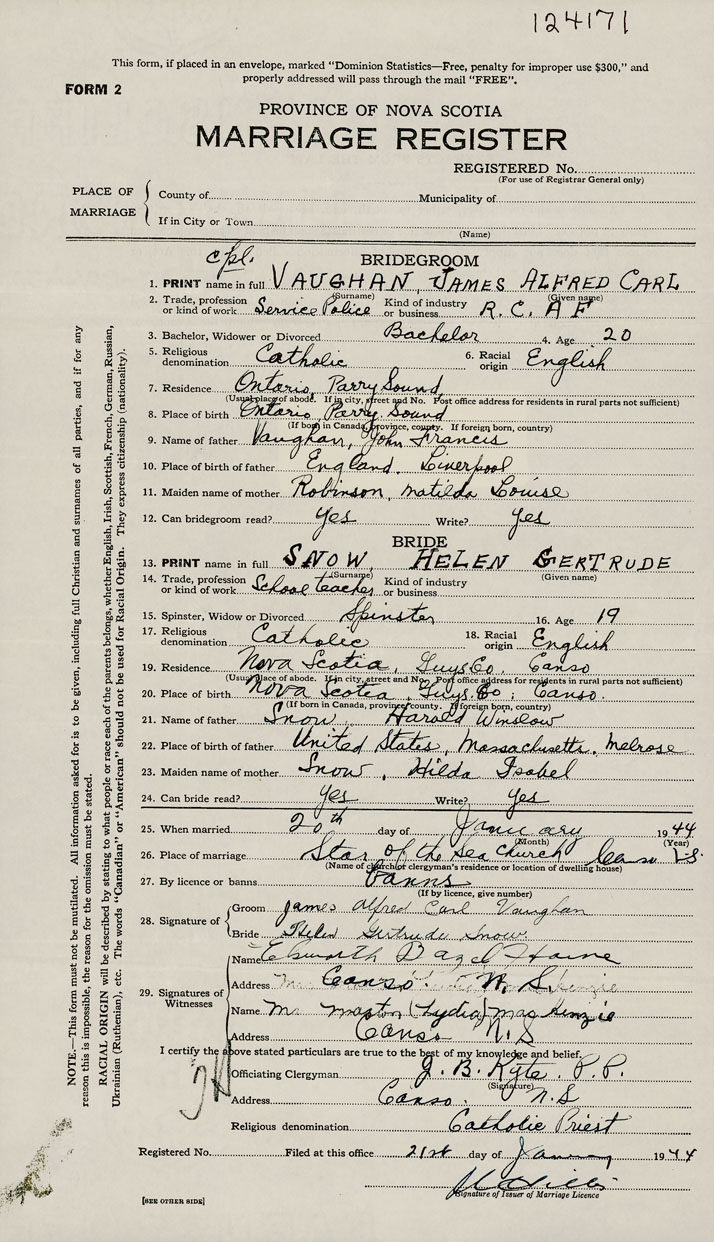 124171
This form, if placed in an envelope, marked "Dominion Statistics—Free, penalty for improper use $300," and
properly addressed will pass through the mail "FREE".
FORM 2
PROVINCE OF NOVA SCOTIA
MARRIAGE REGISTER
REGISTERED No.
(For use of Registrar General only)
PLACE OF MARRIAGE
County of Municipality of
If in City or Town
(Name)
cpl. BRIDEGROOM
1. PRINT name in full VAUGHAN, JAMES ALFRED CARL
(Surname) (Given name)
2. Trade, profession or kind of work Service Police Kind of industry or business R. C. A F
3. Bachelor, Widower or Divorced Bachelor 4. Age 20
5. Religious denomination Catholic 6. Racial origin English
7. Residence Ontario, Parry Sound
(Usual place of abode. If in city, street and No. Post office address for residents in rural parts not sufficient)
8. Place of birth Ontario, Parry Sound
(If born in Canada, province, county. If foreign born, country)
9. Name of father Vaughan, John Francis
10. Place of birth of father England. Liverpool
11. Maiden name of mother Robinson, Matilda Louise
12. Can bridegroom read? Yes Write? Yes
BRIDE
13. PRINT name in full SNOW, HELEN GERTRUDE
(Surname) (Given name)
14. Trade, profession or kind of work School teacher Kind of industry or business
15. Spinster, Widow or Divorced Spinster 16. Age 19
17. Religious denomination Catholic 18. Racial origin English
19. Residence Nova Scotia, Guys. Co, Canso
(Usual place of abode. If in city, street and No. Post office address for residents in rural parts not sufficient)
20. Place of birth Nova Scotia, Guys. Co; Canso.
(If born in Canada, province, county. If foreign born, country)
21. Name of father Snow, Harold Winslow
22. Place of birth of father United States, Massachusetts, Melrose
23. Maiden name of mother Snow, Hilda Isobel
24. Can bride read? Yes Write? Yes
25. When married 20th day of January 1944
(Month) (Year)
26. Place of marriage Star of the Sea Church Canso N.S.
(Name of church or clergyman's residence or location of dwelling house)
27. By licence or banns Banns
(If by licence, give number)
28. Signature of
Groom James Alfred Carl Vaughan
Bride Helen Gertrude Snow.
29. Signatures of Witnesses
Name
Address Canso. N. S.
Name (Lydia) MacKenzie
Address Canso N. S
I certify the above stated particulars are true to the best of my knowledge and belief.
Officiating Clergyman J. B. Kyte. P. P.
(Signature)
Address Canso. N. S
Religious denomination Catholic Priest
Registered No. Filed at this office 21st day of January 1944
Signature of Issuer of Marriage Licence
[SEE OTHER SIDE]
NOTE.—This form must not be mutilated. All information asked for is to be given, including full Christian and surnames of all parties, and if for any
reason this is impossible, the reason for the omission must be stated.
RACIAL ORIGIN will be described by stating to what people or race each of the parents belongs, whether English, Irish, Scottish, French, German, Russian,
Ukrainian (Ruthenian), etc. The words "Canadian" or "American" should not be used for Racial Origin. They express citizenship (nationality).